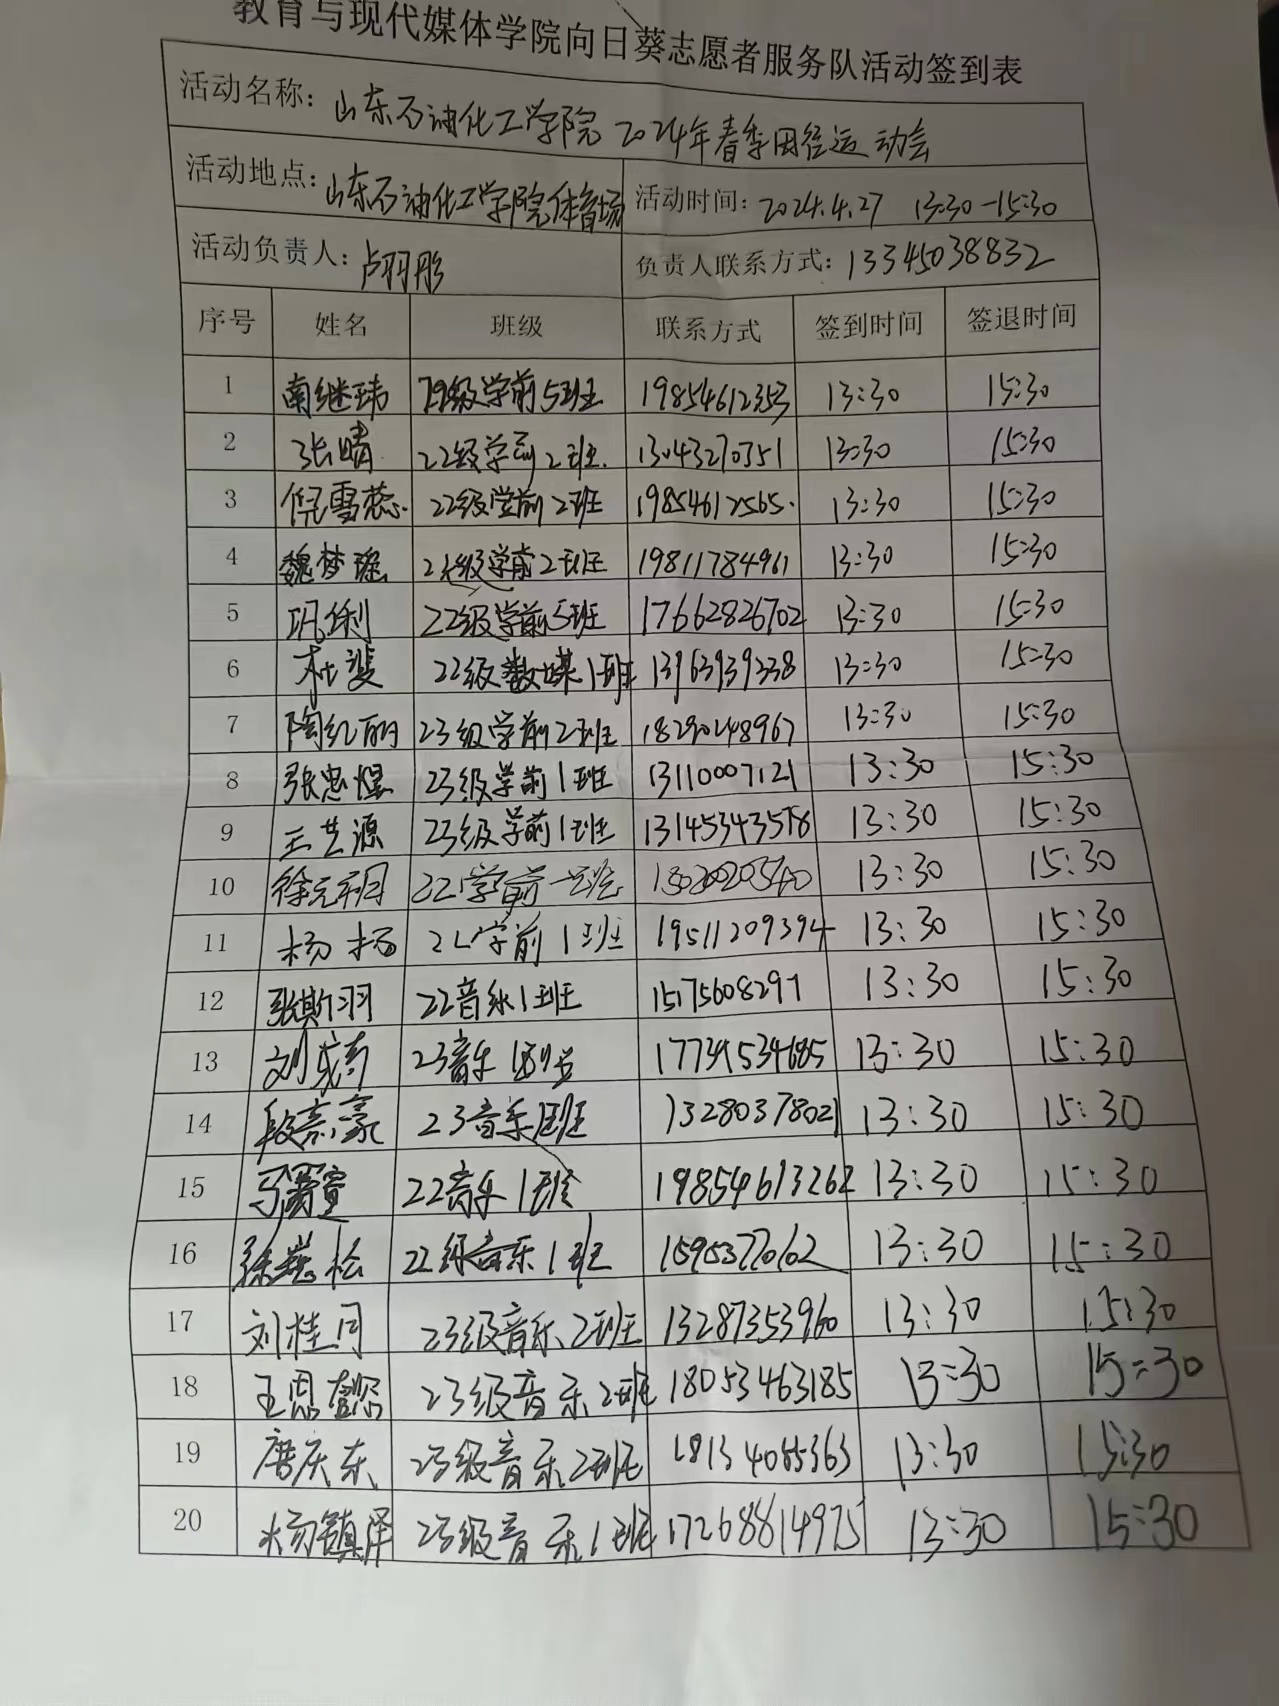 教育与现代媒体学院向日葵志愿者服务队活动签到表
活动名称：山东石油化工学院2024年春季田径运动会
活动地点：山东石油化工学院体育场 活动时间：2024.4.27 13:30-15:30
活动负责人：卢羽彤 负责人联系方式：13345038832
序号 姓名 班级 联系方式 签到时间 签退时间
1 南继玮 级学前5班 19854612353 13:30 15:30
2 张晴 22级学前2班. 13043270351 13:30 15:30
3 倪雪蕊 22级学前2班 19854612565. 13:30 15:30
4 魏梦瑶 级学前2班 19811784961 13:30 15:30
5 巩俐 22级学前5班 17662826702 13:30 15:30
6 杜斐 22级数媒1班 13963939338 13:30 15:30
7 陶红丽 23级学前2班 18290248967 13:30 15:30
8 张忠煜 23级学前1班 13110007121 13:30 15:30
9 王艺源 23级学前1班 13145343578 13:30 15:30
10 22学前一班 13:30 15:30
11 杨杨 学前1班 19511209394 13:30 15:30
12 张斯羽 22音乐1班 15175608297 13:30 15:30
13 刘成奇 23音乐 13:30 15:30
14 段豪 23音乐1班 13280378021 13:30 15:30
15 马萱 22音乐1班 19854613262 13:30 15:30
16 徐松 22级音乐1班 15953770162 13:30 15:30
17 刘桂同 23级音乐2班 13287353960 13:30 15:30
18 王恩 23级音乐2班 18053463185 13:30 15:30
19 唐庆东 23级音乐2班 13:30 15:30
20 杨镇泽 23级音乐1班 17268814975 13:30 15:30